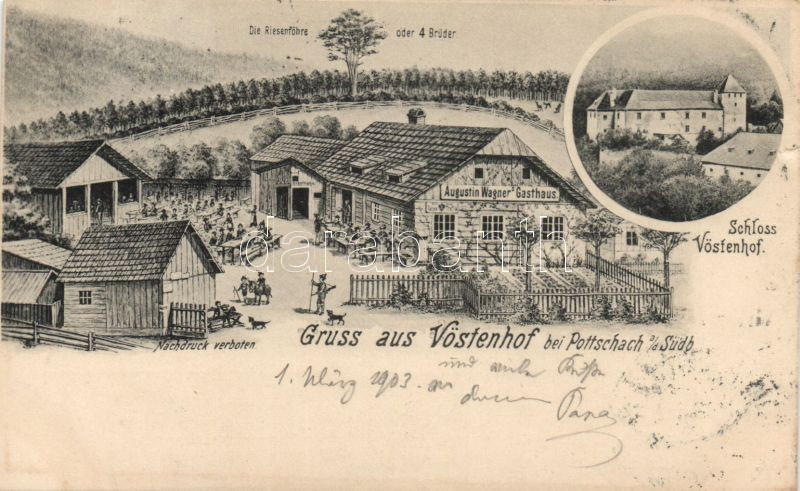 Die Riesenföhre oder 4 Brüder
Augustin Wagner's Gasthaus.
Schloss
Vöstenhof.
darabanth
Nachdruck verboten
Gruss aus Vöstenhof bei Pottschach a/d Südb.
1. März 1903.
und
Papa